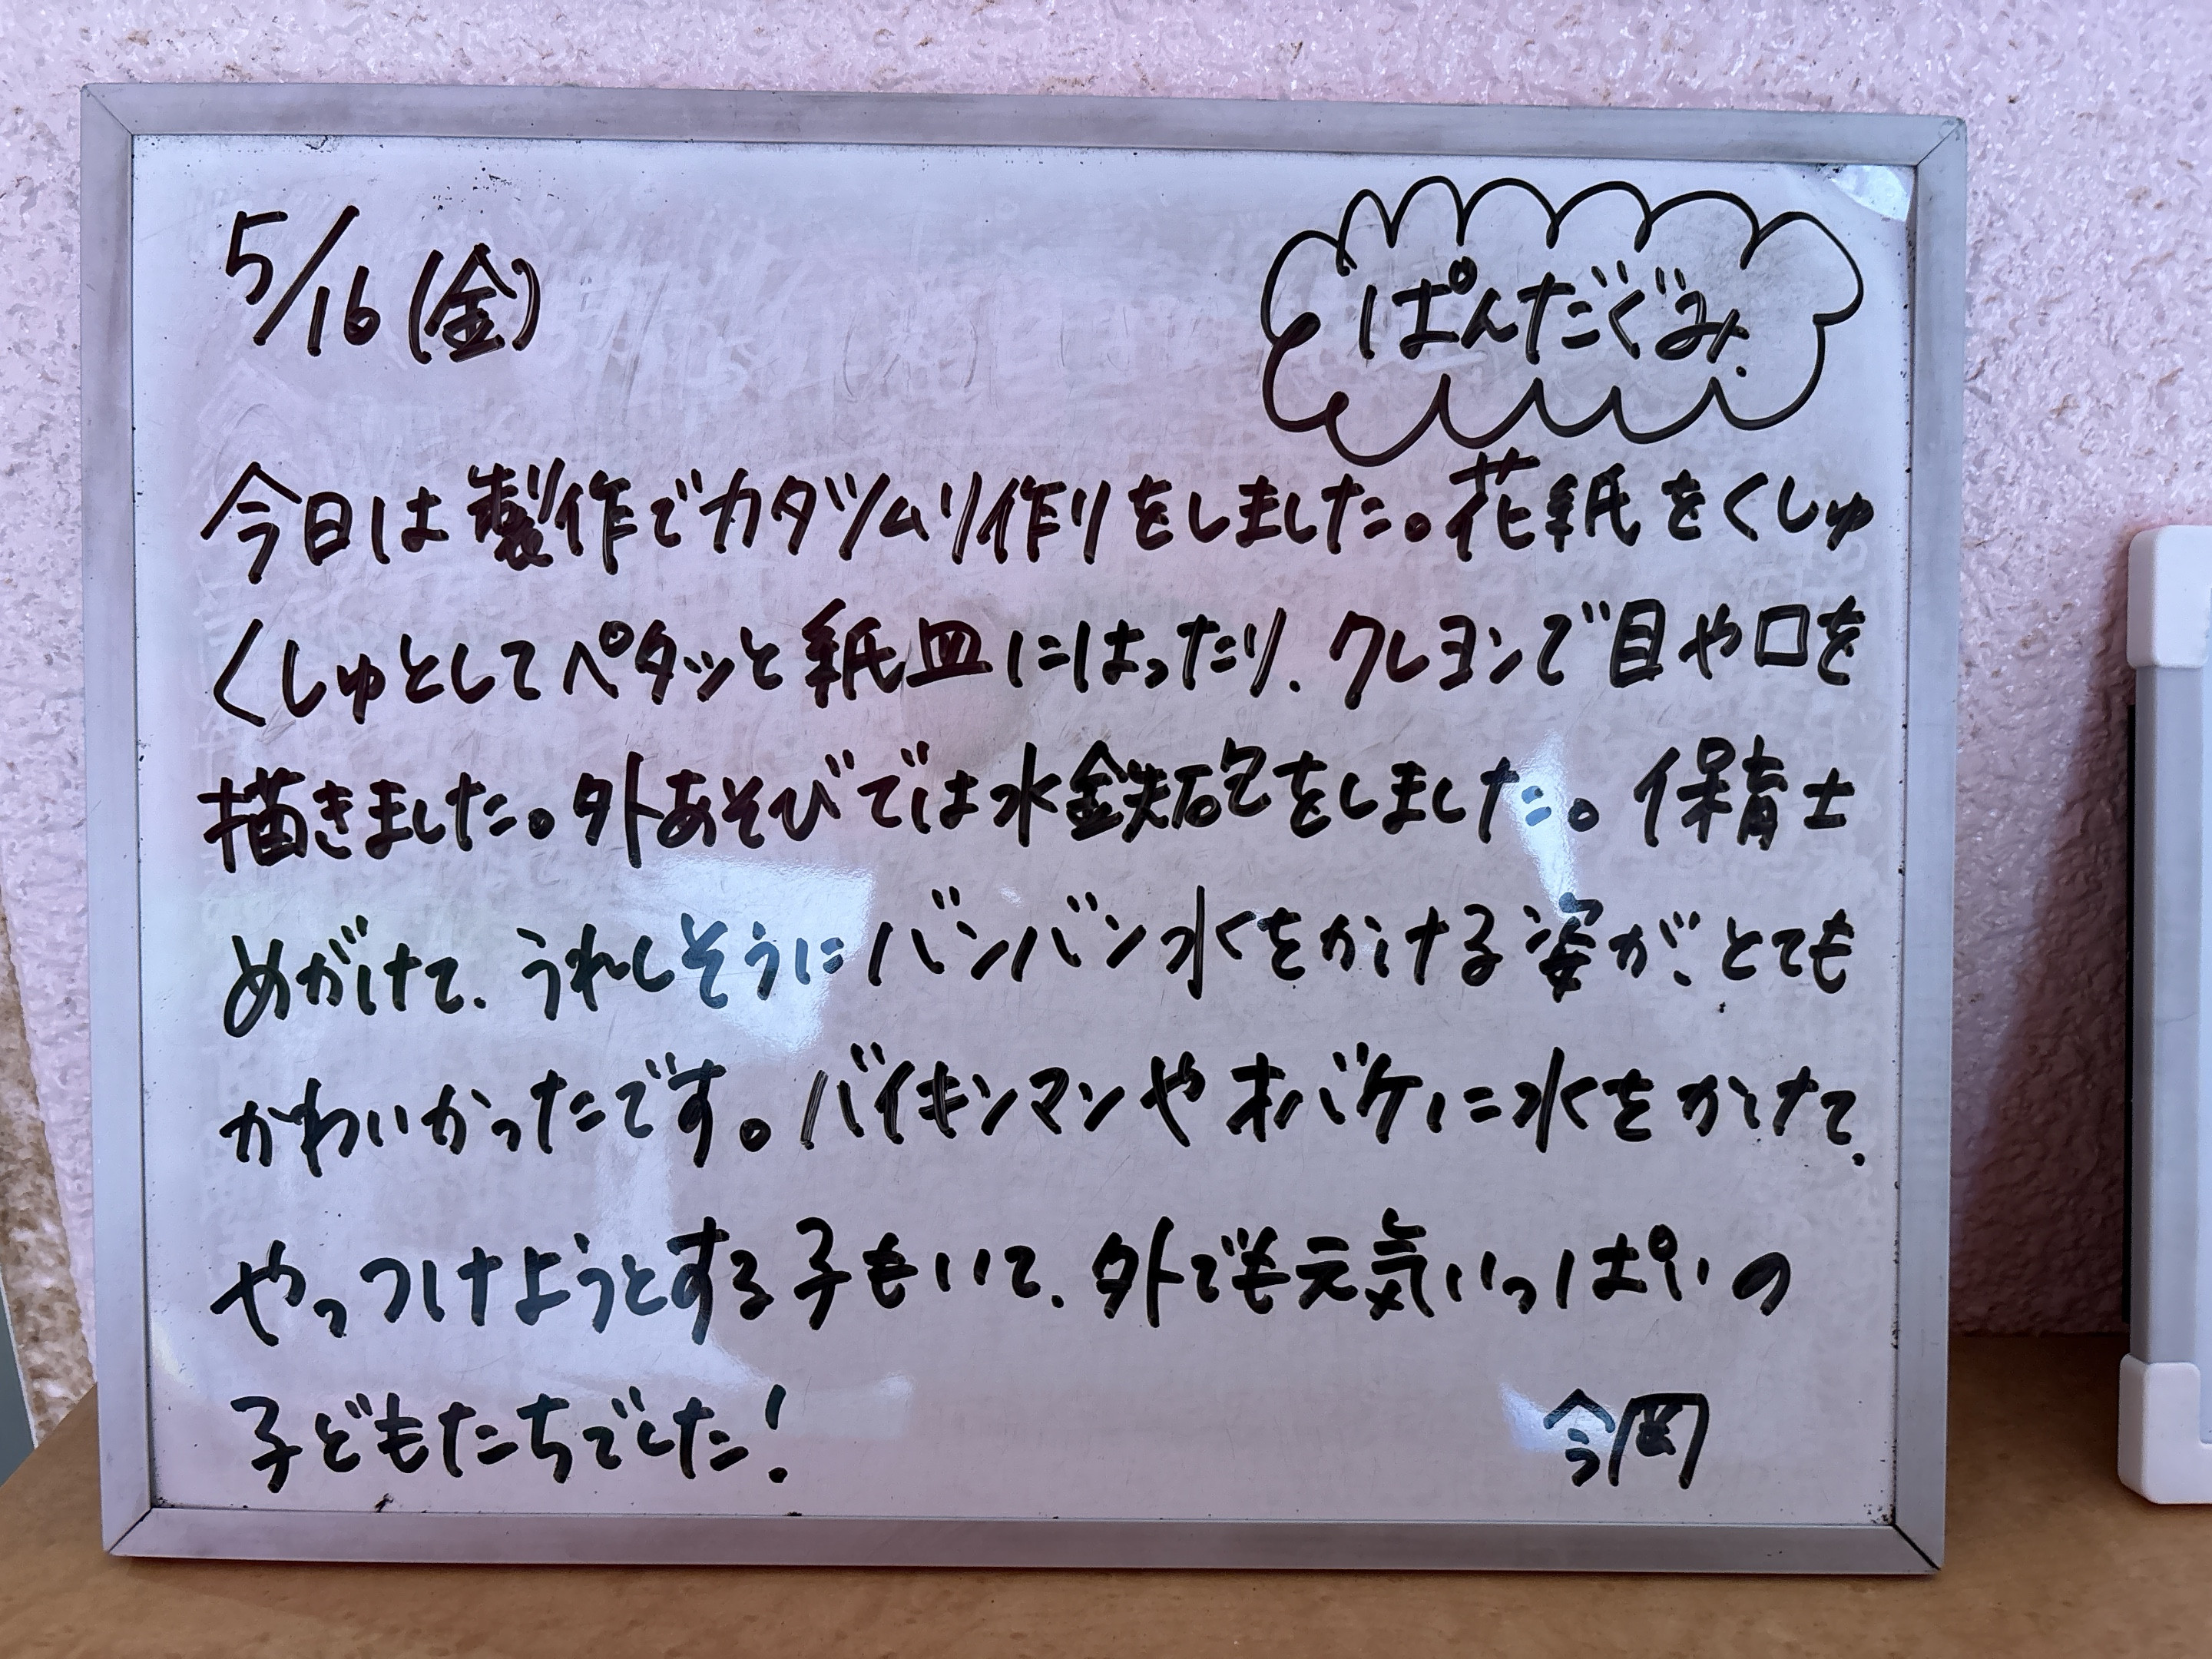 5/16(金)
ぱんだぐみ.
今日は製作でカタツムリ作りをしました。花紙をくしゅ
くしゅとしてペタッと紙皿にはったり、クレヨンで目や口を
描きました。外あそびでは水鉄砲をしました。保育士
めがけて、うれしそうにバンバン水をかける姿が、とても
かわいかったです。バイキンマンやオバケに水をかけて、
やっつけようとする子もいて、外でも元気いっぱいの
子どもたちでした!
今岡